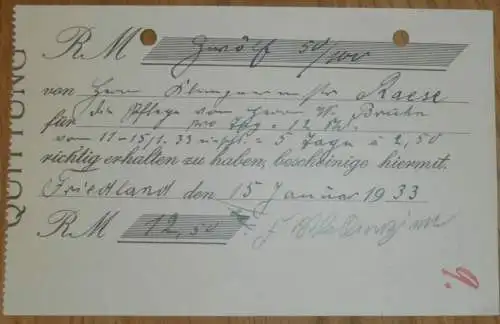 QUITTUNG
RM zwölf 50/100
von Herrn Klempnermstr Raese
für die Pflege von Herrn W.
vom 11-15/1. 33 = 5 Tage á 2,50
richtig erhalten zu haben, bescheinige hiermit.
Friedland den 15 Januar 1933
RM 12,50